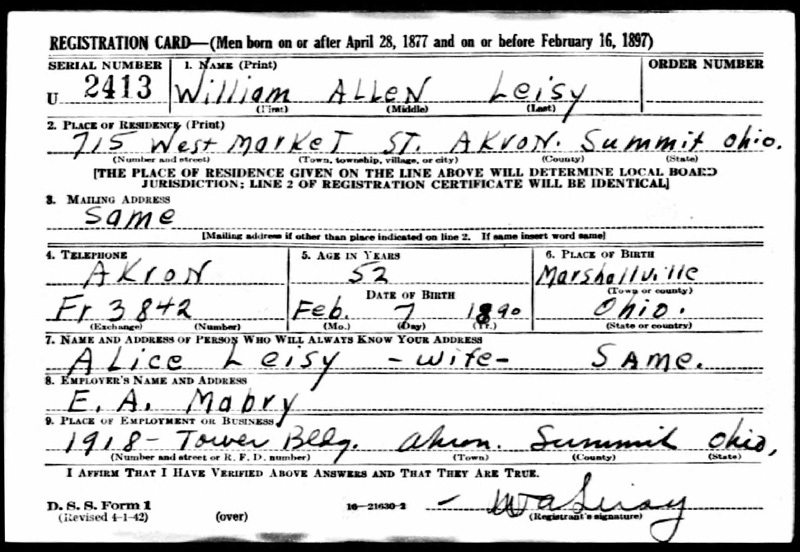 REGISTRATION CARD—(Men born on or after April 28, 1877 and on or before February 16, 1897)
SERIAL NUMBER 1. NAME (Print) ORDER NUMBER
U 2413 William ALLEN Leisy
(First) (Middle) (Last)
2. PLACE OF RESIDENCE (Print)
715 West Market ST. AKRON. Summit Ohio.
(Number and street) (Town, township, village, or city) (County) (State)
[THE PLACE OF RESIDENCE GIVEN ON THE LINE ABOVE WILL DETERMINE LOCAL BOARD
JURISDICTION; LINE 2 OF REGISTRATION CERTIFICATE WILL BE IDENTICAL]
3. MAILING ADDRESS
Same
[Mailing address if other than place indicated on line 2. If same insert word same]
4. TELEPHONE 5. AGE IN YEARS 6. PLACE OF BIRTH
AKRON 52 Marshallville
DATE OF BIRTH (Town or county)
Fr 3842 Feb. 7 1890 Ohio.
(Exchange) (Number) (Mo.) (Day) (Yr.) (State or country)
7. NAME AND ADDRESS OF PERSON WHO WILL ALWAYS KNOW YOUR ADDRESS
Alice Leisy - wife - SAME.
8. EMPLOYER'S NAME AND ADDRESS
E. A. Mabry
9. PLACE OF EMPLOYMENT OR BUSINESS
1918 - Tower Bldg. Akron. Summit Ohio,
(Number and street or R. F. D. number) (Town) (County) (State)
I AFFIRM THAT I HAVE VERIFIED ABOVE ANSWERS AND THAT THEY ARE TRUE.
D. S. S. Form 1
(Revised 4-1-42) (over) 16—21630-2 - WA Leisy
(Registrant's signature)